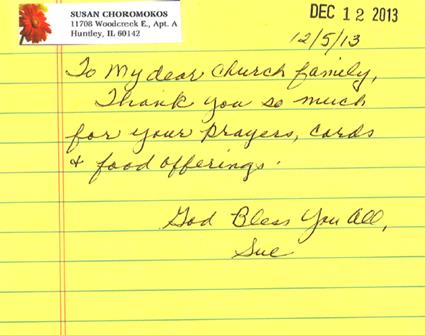 SUSAN CHOROMOKOS
11708 Woodcreek E., Apt. A
Huntley, IL 60142
DEC 12 2013
12/5/13
To My dear Church family,
Thank you so much
for your prayers, cards
& food offerings.
God Bless You All,
Sue